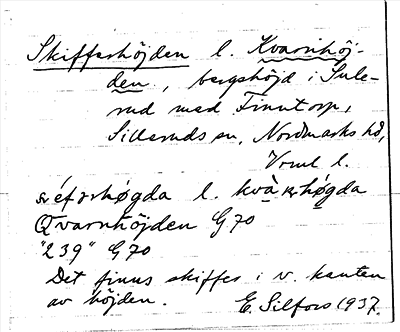 Skifferhöjden l. Kvarnhöj-
den, bergshöjd i Sule-
rud med Finntorp,
Silleruds sn, Nordmarks hd,
Vrml l.
høgda l. høgda
Qvarnhöjden G70
"239" G70
Det finns skiffer i v. kanten
av höjden. E. Silfors 1937.